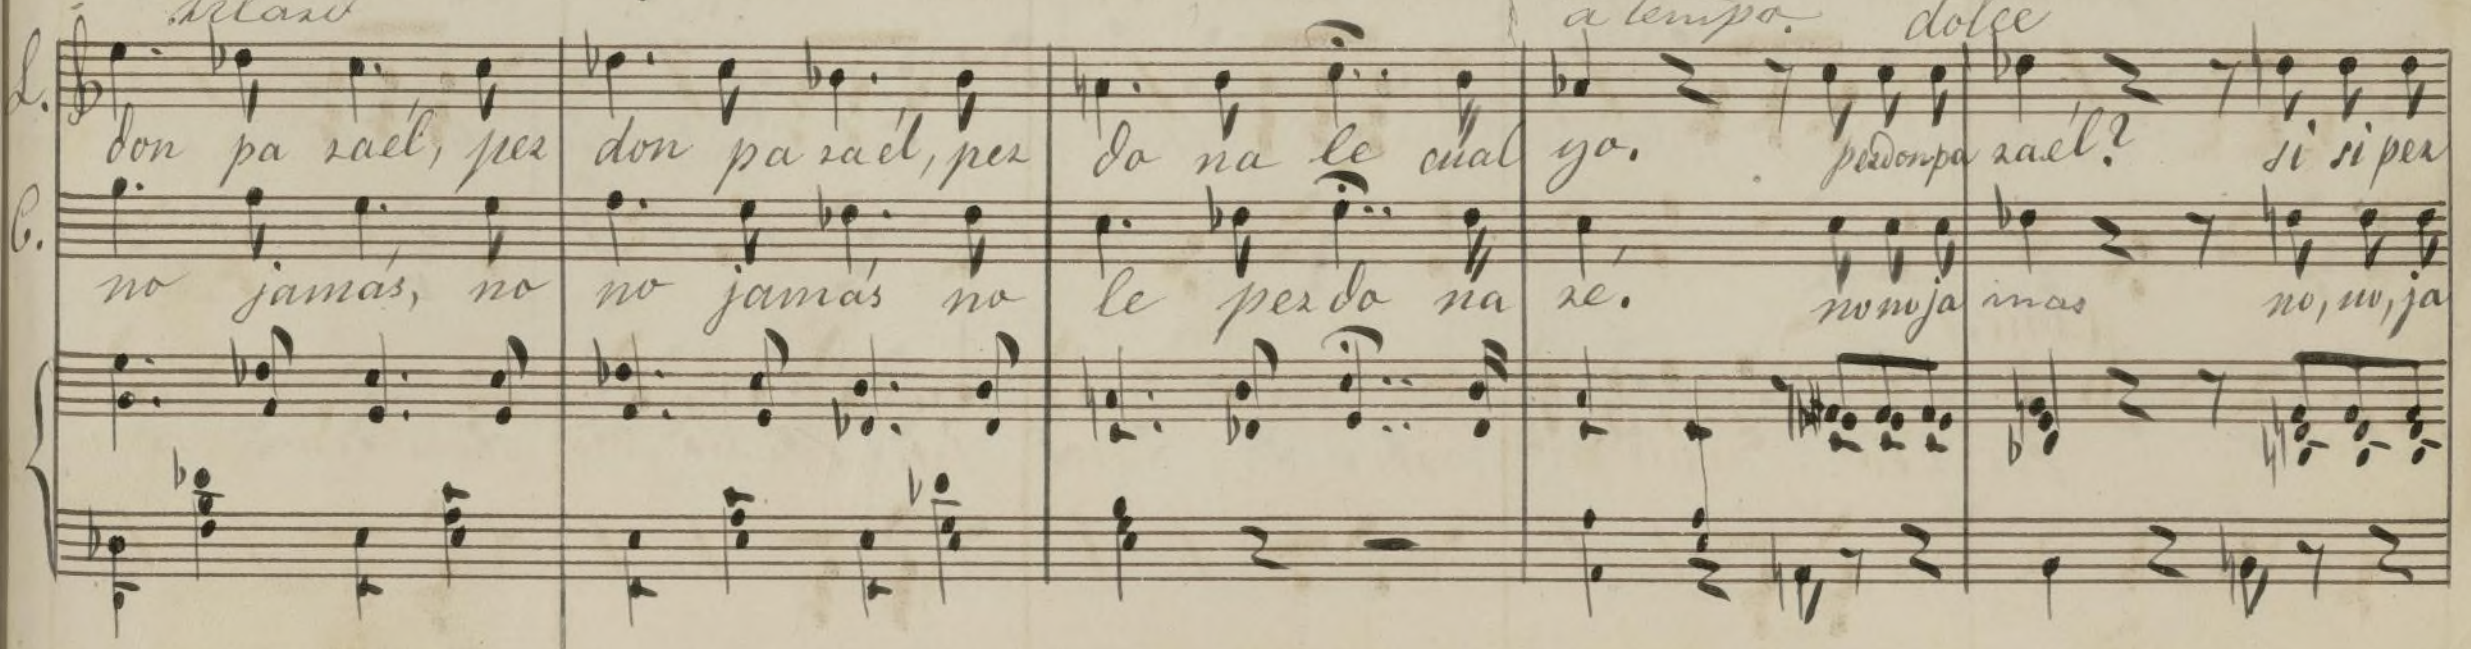 a tempo. dolce
L.
don pa ra él, per don pa ra él, per do na le cual yo. perdon pa ra él? si si per
C.
no jamás, no no jamás no le perdo na ré. no no ja mas no, no, ja